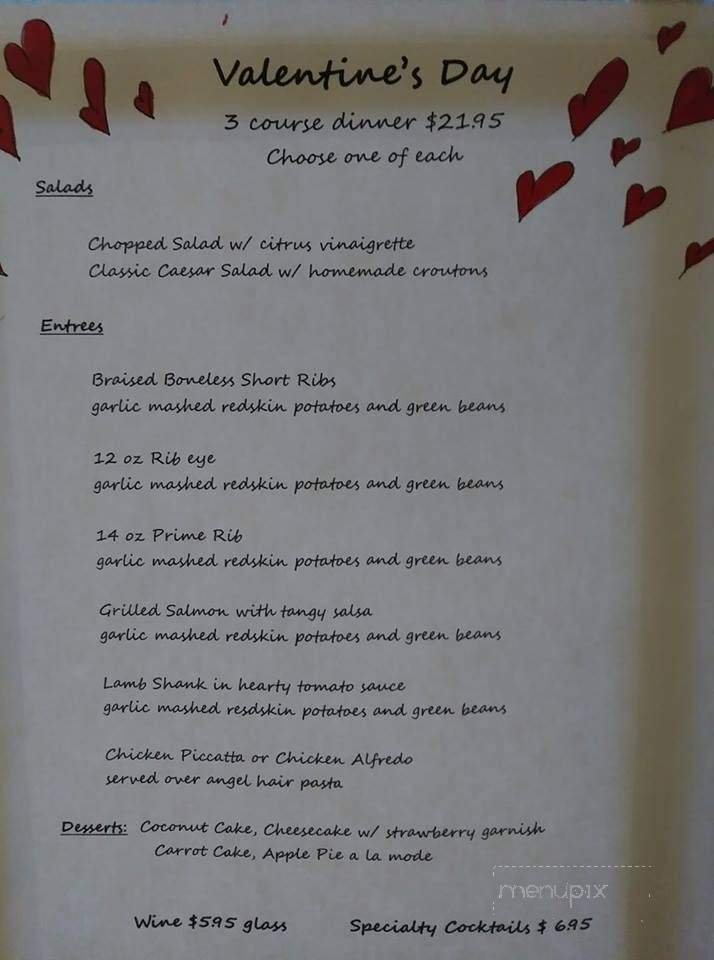 Valentine's Day
3 course dinner $21.95
Choose one of each
Salads
Chopped Salad w/ citrus vinaigrette
Classic Caesar Salad w/ homemade croutons
Entrees
Braised Boneless Short Ribs
garlic mashed redskin potatoes and green beans
12 oz Rib eye
garlic mashed redskin potatoes and green beans
14 oz Prime Rib
garlic mashed redskin potatoes and green beans
Grilled Salmon with tangy salsa
garlic mashed redskin potatoes and green beans
Lamb Shank in hearty tomato sauce
garlic mashed resdskin potatoes and green beans
Chicken Piccatta or Chicken Alfredo
served over angel hair pasta
Desserts: Coconut Cake, Cheesecake w/ strawberry garnish
Carrot Cake, Apple Pie a la mode
menupix
Wine $5.95 glass Specialty Cocktails $ 6.95